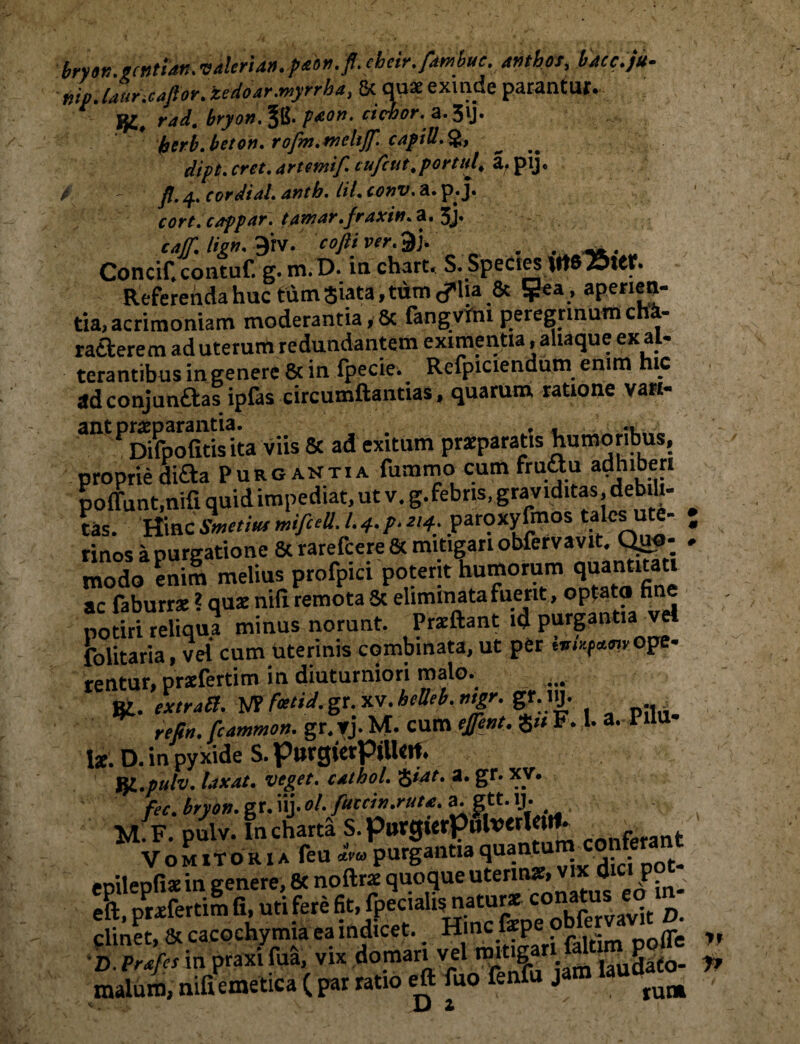 bryon.gentian.valerian.pæon.fl.cheir.sambuc. anthos, bacc.ju-
nip.laur.castor.zedoar.myrrha, & quæ exinde parantur.
℞. rad. bryon. ℥ß. pæon. cichor. a. ʒij.
herb. beton. rosm. meliss. capill. ♀,
dipt. cret. artemis. cuscut. portul. a. pij.
fl. 4. cordial. anth. lil. conv. a. p.j.
cort. cappar. tamar. fraxin. a. ʒj.
cass. lign. ℈iv. costi ver. ℈j.
Concis. contus. g. m. D. in chart. S. Species ins Bier.
Referenda huc tùm ♁iata, tùm ♂lia & ☿ea, aperien-
tia, acrimoniam moderantia, & sangvini peregrinum cha-
racterem ad uterum redundantem eximentia, aliaque ex al-
terantibus in genere & in specie. Respiciendum enim hic
ad conjunctas ipsas circumstantias, quarum ratione vari-
ant præparantia.
Dispositis ita viis & ad exitum præparatis humoribus,
propriè dicta PURGANTIA summo cum fructu adhiberi
possunt, nisi quid impediat, ut v. g. febris, graviditas, debili-
tas. Hinc Smetius miscell. l. 4. p. 214. paroxysmos tales ute-
rinos à purgatione & rarescere & mitigari observavit. Quo-
modo enim melius prospici poterit humorum quantitati
ac saburræ? quæ nisi remota & eliminata fuerit, optato fine
potiri reliqua minus norunt. Præstant id purgantia vel
solitaria, vel cum uterinis combinata, ut per ἐπίκρασιν ope-
rentur, præsertim in diuturniori malo.
℞. extract. fœtid. gr. xv. helleb. nigr. gr. iij.
resin. scammon. gr. vj. M. cum essent. F. l. a. Pilu-
læ. D. in pyxide S. Purgierpillen.
℞. pulv. laxat. veget. cathol. a. gr. xv.
fec. bryon. gr. iij. ol. succin. rutæ. a. gtt. ij.
M. F. pulv. In charta S. Purgierpülverlein.
VOMITORIA seu ἄνω purgantia quantum conferant
epilepsiæ in genere, & nostræ quoque uterinæ, vix dici pot-
est, præsertim si, uti ferè fit, specialis naturæ conatus eò in-
clinet, & cacochymia ea indicet. Hinc sæpe observavit D.
D. Præses in praxi suâ, vix domari vel mitigari saltim posse „
malum, nisi emetica (par ratio est suo sensu jam laudato- „
D 2 rum